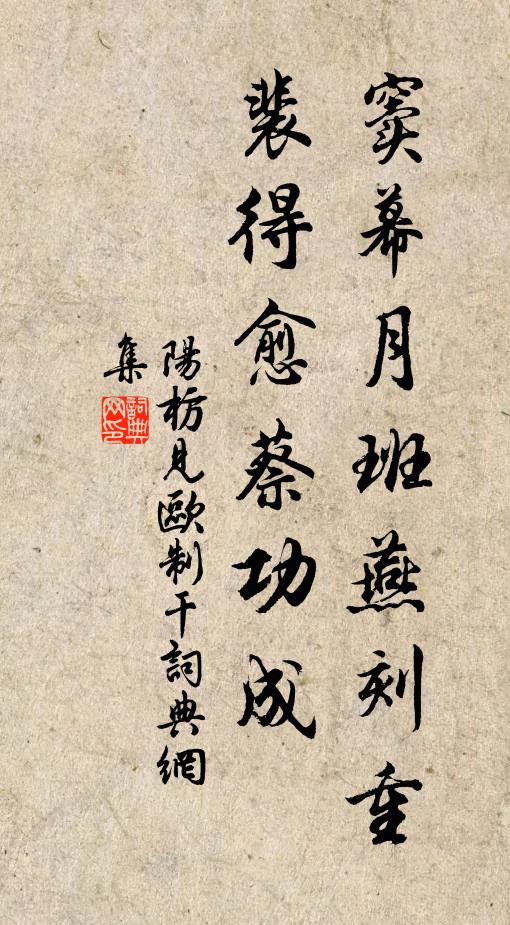 窦幕月班燕刻重
裴得愈蔡功成
陽枋見歐制干詞典網
集
詞典
网印